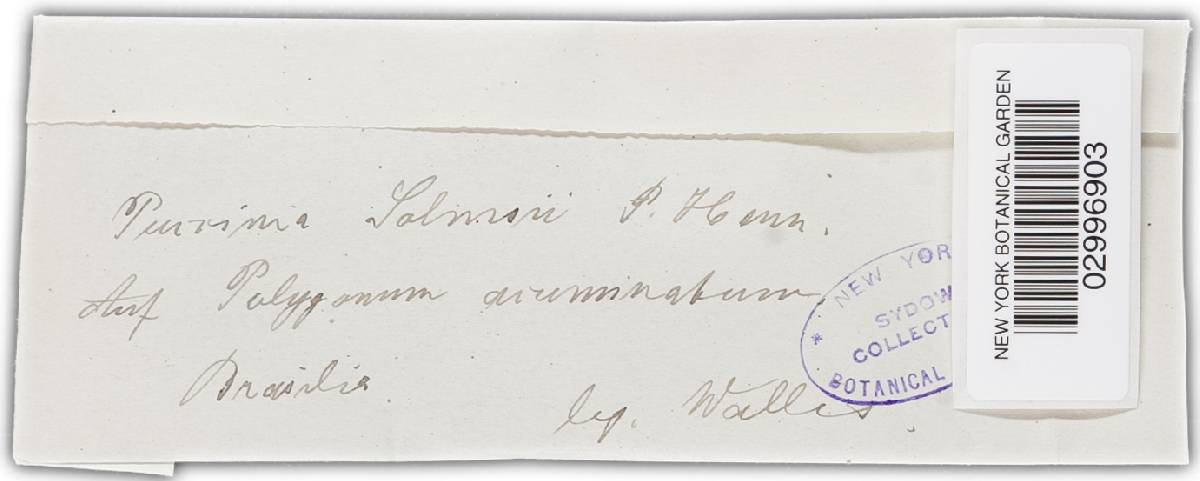 Puccinia Solmsii P. Henn.
Auf Polygonum acuminatum
Brasilia
leg. Wallis.
* NEW YOR
SYDOW
COLLECT
BOTANICAL
NEW YORK BOTANICAL GARDEN
02996903